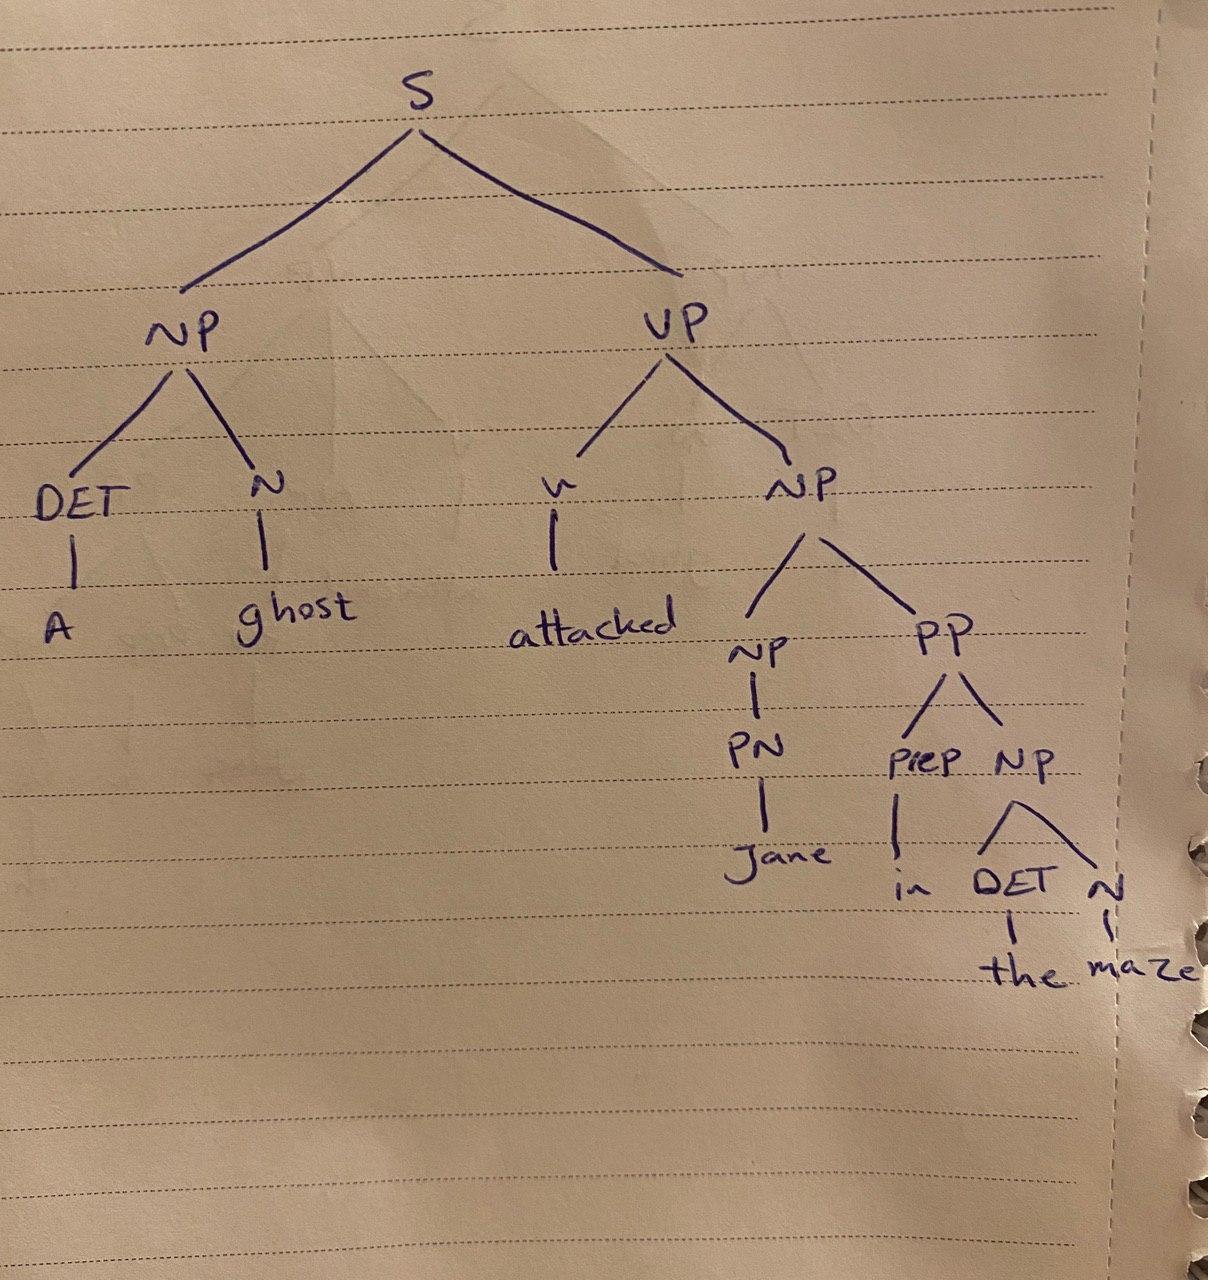 S
NP VP
DET N V NP
A ghost attacked NP PP
PN Prep NP
Jane in DET N
the maze